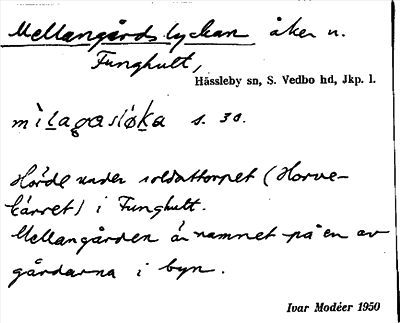 Mellangårdslyckan åker u.
Funghult,
Hässleby sn, S. Vedbo hd, Jkp. l.
s. 30.
Hörde under soldattorpet (Horve-
kärret) i Funghult.
Mellangården är namnet på en av
gårdarna i byn.
Ivar Modéer 1950